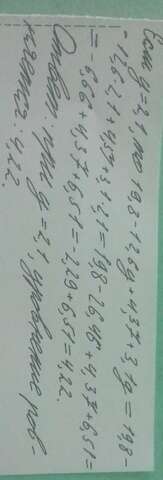 Если y=2,1, то 19,8-12,6y+4,37+3,1y=19,8-
-12,6·2,1+4,37+3,1·2,1=19,8-26,46+4,37+6,51=
=-6,66+4,37+6,51=-2,29+6,51=4,22.
Ответ: при y=2,1, уравнение рав-
няется: 4,22.